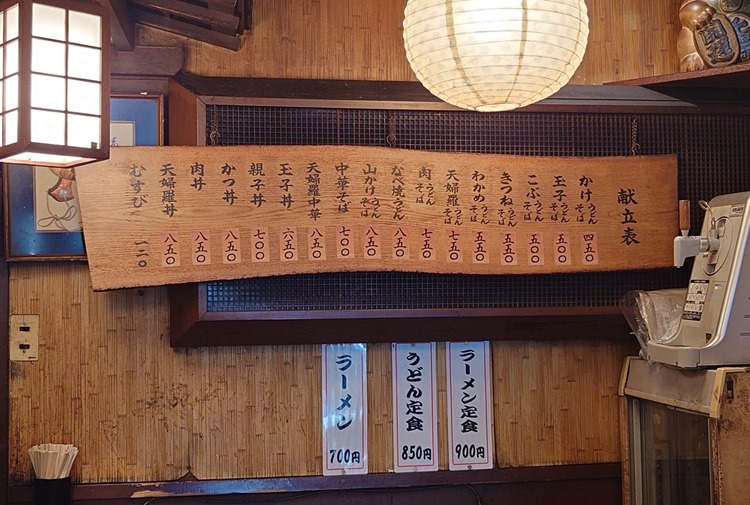 献立表
かけ うどん そば 四五〇
玉子 うどん そば 五〇〇
こぶ うどん そば 五〇〇
きつね うどん そば 五五〇
わかめ うどん そば 五五〇
天婦羅 うどん そば 七五〇
肉 うどん そば 七五〇
なべ焼うどん 八五〇
山かけ うどん そば 八五〇
中華そば 七〇〇
天婦羅中華 八五〇
玉子丼 六五〇
親子丼 七〇〇
かつ丼 八五〇
肉丼 八五〇
天婦羅丼 八五〇
むすび 一二〇
ラーメン定食 900円
うどん定食 850円
ラーメン 700円